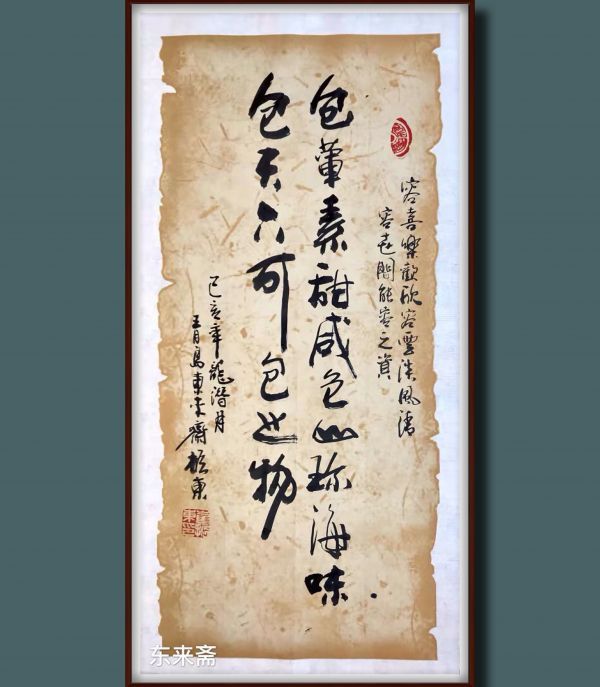 容喜樂歡欣容豐淡風清
容世間能容之資
包葷素甜咸包山珍海味
包天下可包之物
己亥年龍潛月
青島東来齋東
东来斋